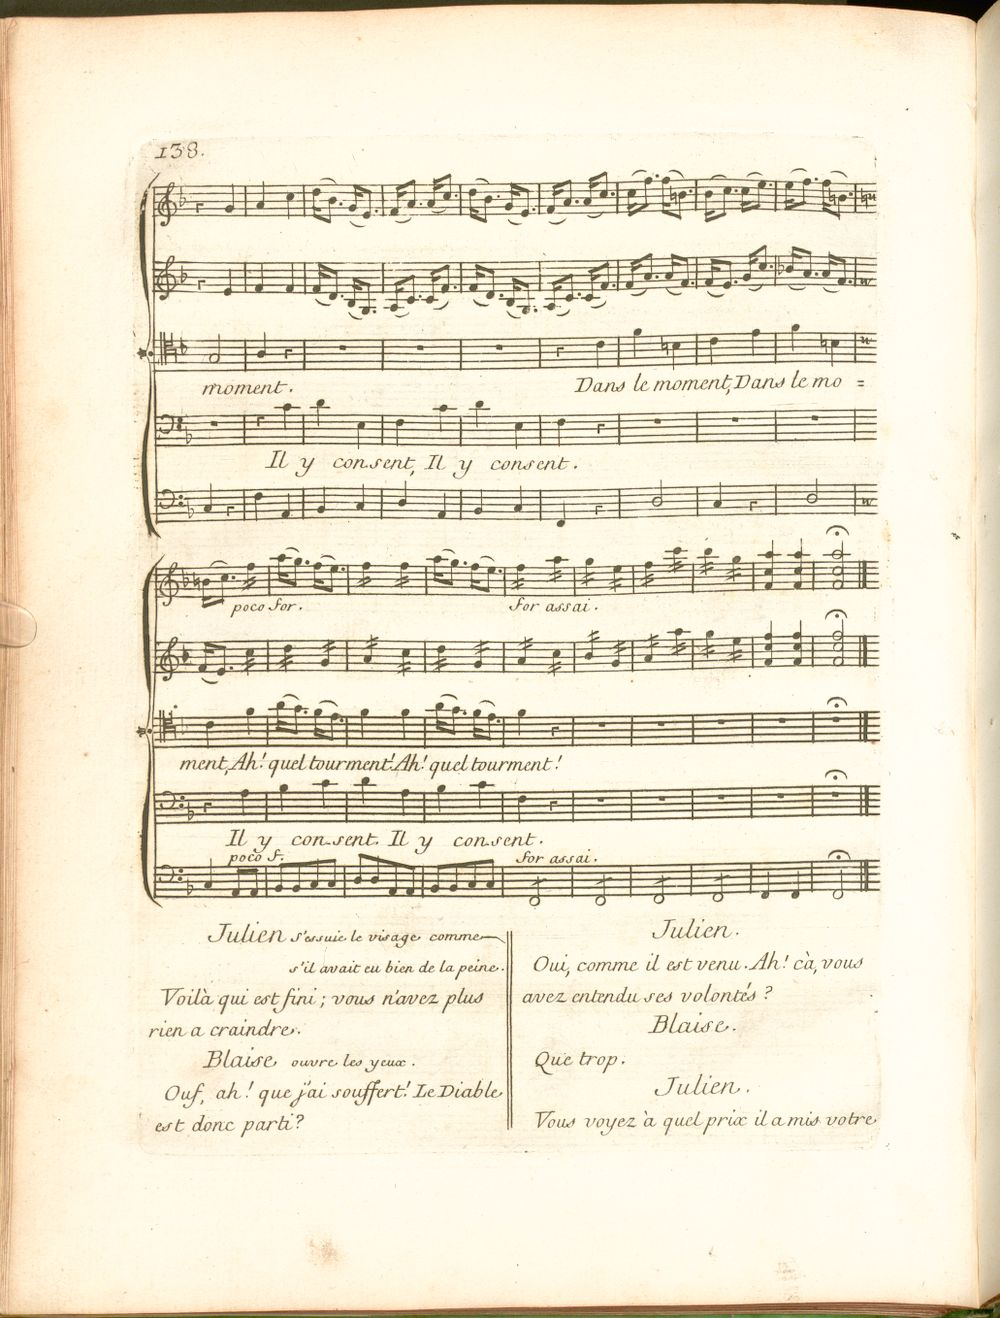 138.
moment. Dans le moment, Dans le mo =
Il y consent, Il y consent.
poco for. for assai.
ment, Ah! quel tourment! Ah! quel tourment!
Il y consent. Il y consent.
poco f. for assai.
Julien s'essuie le visage comme
s'il avait eu bien de la peine.
Voilà qui est fini; vous n'avez plus
rien a craindre.
Blaise ouvre les yeux.
Ouf, ah! que j'ai souffert! Le Diable
est donc parti?
Julien.
Oui, comme il est venu. Ah! cà, vous
avez entendu ses volontés?
Blaise.
Que trop.
Julien.
Vous voyez à quel prix il a mis votre